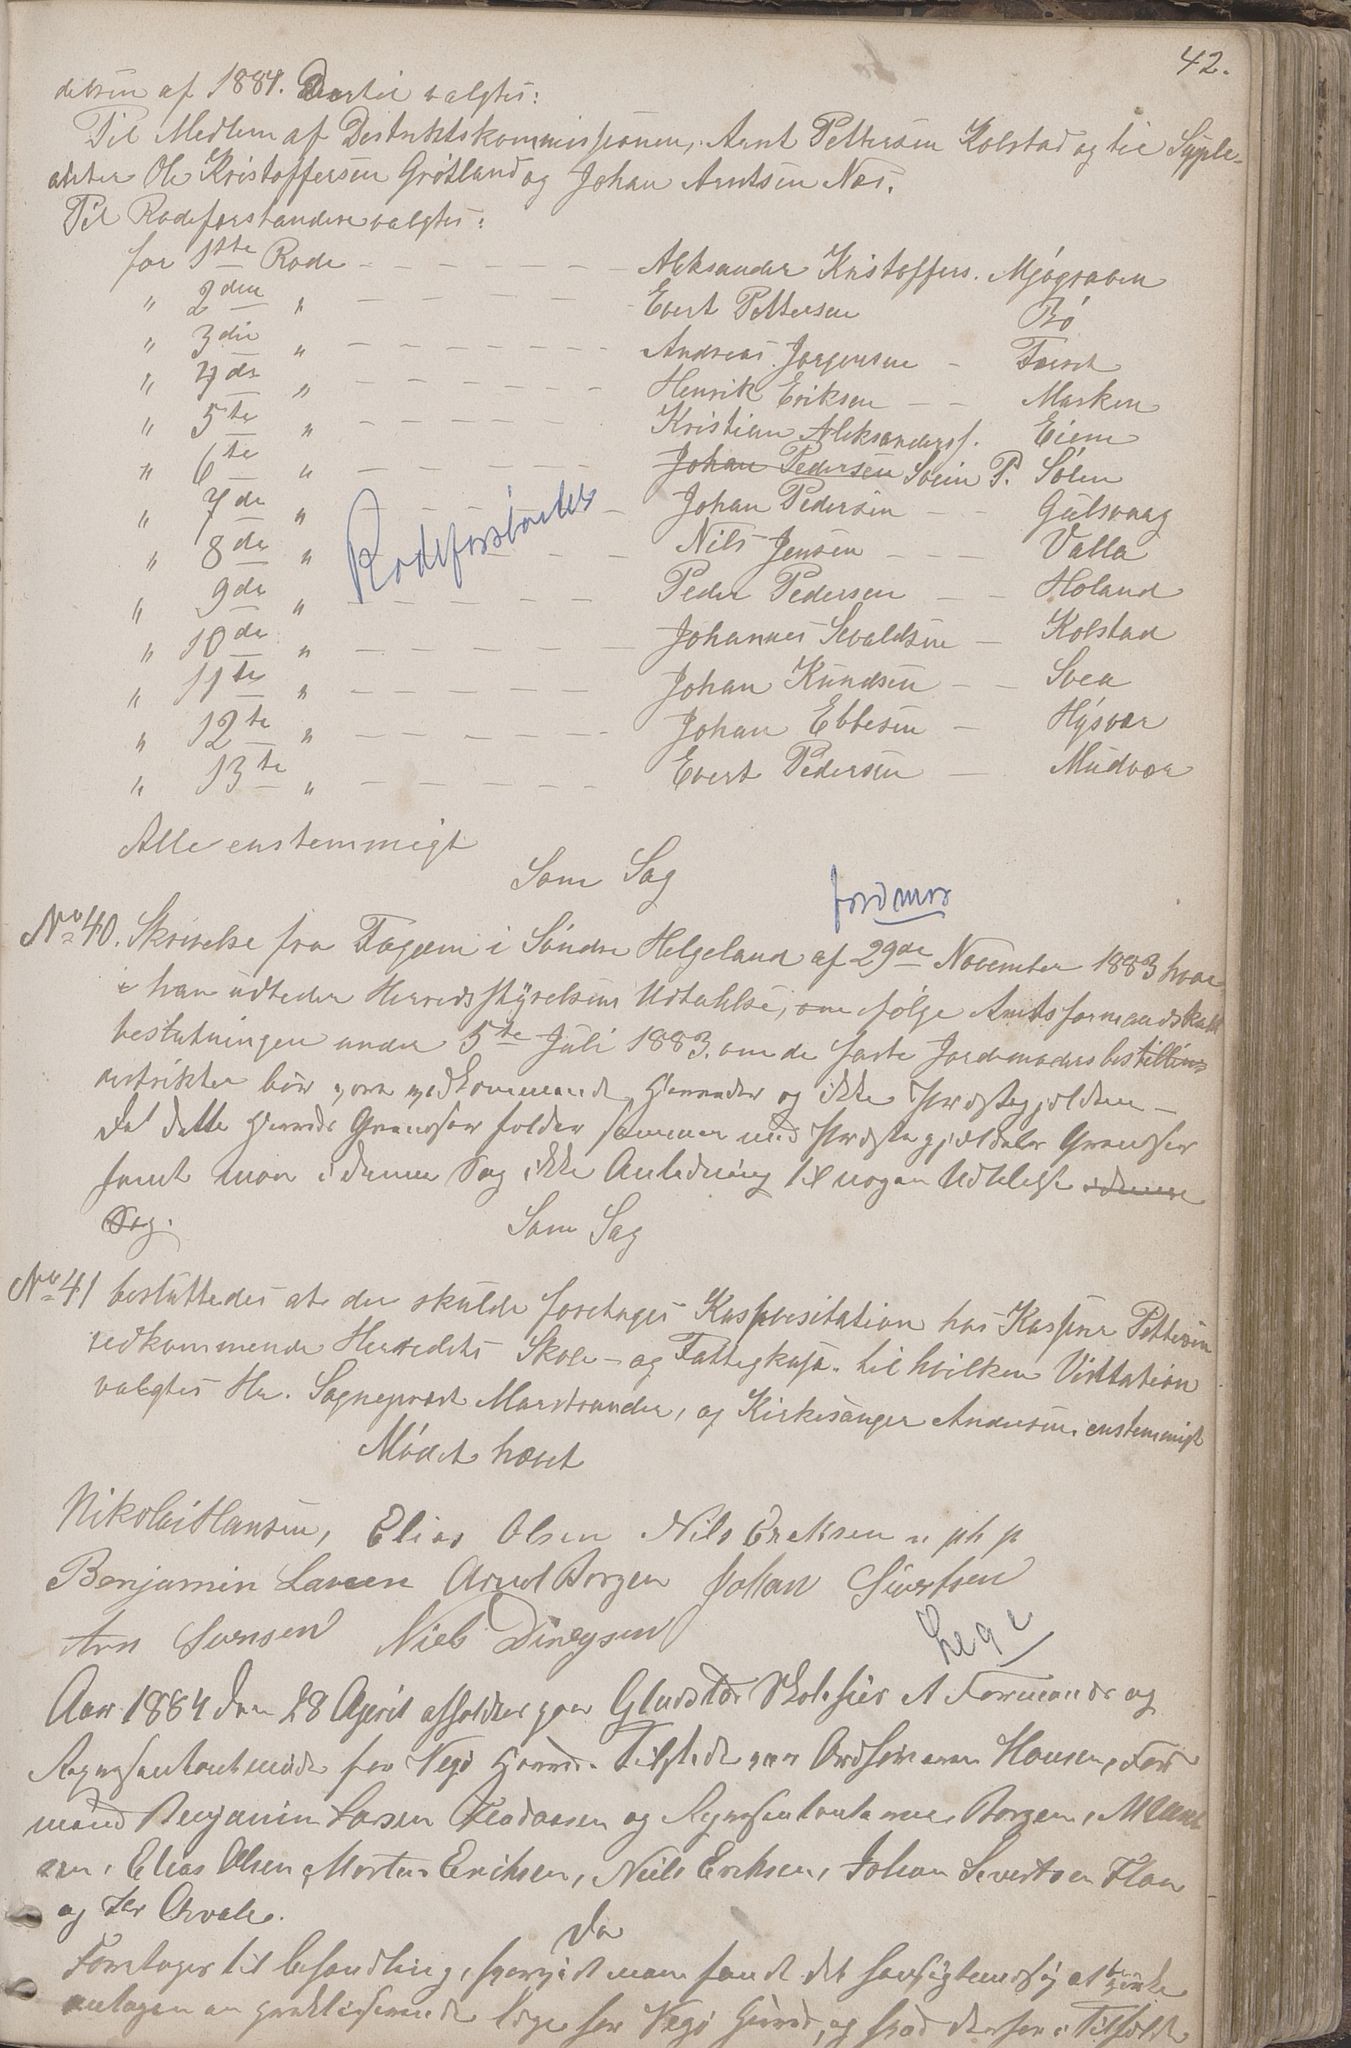 42.
delsen af 1884. Dertil valgtes:
Til Medlem af Distriktskommissionen, Arnt Pettersen Kolstad og til Supple-
anter Ole Kristoffersen Grøtland og Johan Arntsen Næs.
Til Rodeforstandere valgtes:
for 1ste Rode — Aleksander Kristoffers. Mjøgraven
" 2den " — Evert Pettersen Bø
" 3die " — Andreas Jørgensen — Færsek
" 4de " — Henrik Eriksen — Marken
" 5te " — Kristian Aleksanders. Eiem
" 6te " — Johan Pedersen Svein P. Sølen
" 7de " — Johan Pedersen — Gulsvaag
" 8de " — Nils Jensen — Valla
" 9de " — Peder Pedersen — Holand
" 10de " — Johannes Sevaldsen — Kolstad
" 11te " — Johan Knudsen — Svea
" 12te " — Johan Ebbesen — Hysvær
" 13te " — Evert Pedersen — Mudvær
Rodeforstander
Alle enstemmigt
Som Sag
jordmor
No 40. Skrivelse fra Fogden i Søndre Helgeland af 29de November 1883 hvor
i han udbeder Herredsstyrelsens Udtalelse, om følge Amtsformandskabs
beslutningen under 5te Juli 1883. om de faste Jordmoders bestillings
distrikter bør være vedkommende Herreder og ikke Præstegjelden —
Da dette Herreds Grændser falder sammen med Præstegjeldets Grændser
fandt man i denne Sag ikke Anledning til nogen Udtalelse i denne
Sag.
Som Sag
No 41 besluttedes at der skulde foretages Kassevisitation hos Kasserer Pettersen
vedkommende Herredets Skole- og Fattigkasse. til hvilken Visitation
valgtes Hr. Sogneprest Marstrander, og Kirkesanger Andersen. enstemmigt
Mødet hævet
Nikolai Hansen, Elias Olsen Nils Eriksen m ph p
Benjamin Larsen Arnt Borgen Johan Sivertsen
Arn Svensen Niels Dinesen
Lege
Aar 1884 den 28 April afholdtes paa Gladstad Skolehus et Formands og
Repræsentantmøde for Vegø Herred. Tilstede var Ordføreren Hansen, For
mand Benjamin Larsen og Repræsentanterne Borgen,
sen, Elias Olsen, Morten Eriksen, Niels Eriksen, Johan Sivertsen Flou
og
Da
Foretoges til behandling, man fandt det hensigtsmæssig at
antagen en praktiserende læge for Vegø Herred, og